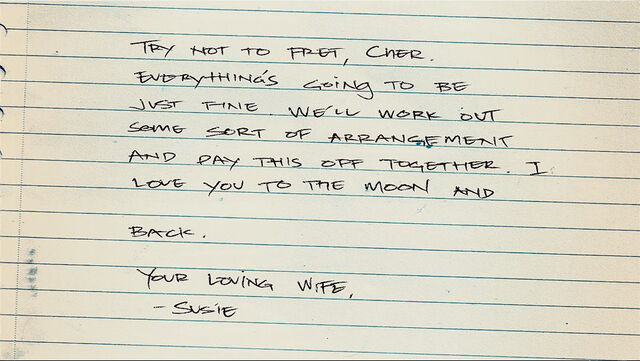 TRY NOT TO FRET, CHER.
EVERYTHING'S GOING TO BE
JUST FINE. WE'LL WORK OUT
SOME SORT OF ARRANGEMENT
AND PAY THIS OFF TOGETHER. I
LOVE YOU TO THE MOON AND
BACK.
YOUR LOVING WIFE,
- SUSIE